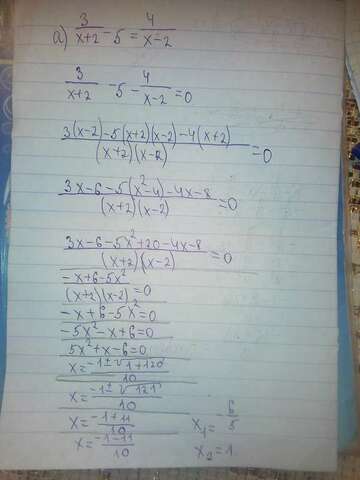 а) 3/(x+2) - 5 = 4/(x-2)
3/(x+2) - 5 - 4/(x-2) = 0
(3(x-2)-5(x+2)(x-2)-4(x+2))/((x+2)(x-2)) = 0
(3x-6-5(x²-4)-4x-8)/((x+2)(x-2)) = 0
(3x-6-5x²+20-4x-8)/((x+2)(x-2)) = 0
(-x+6-5x²)/((x+2)(x-2)) = 0
-x+6-5x²=0
-5x²-x+6=0
5x²+x-6=0
x=(-1±√(1+120))/10
x=(-1±√121)/10
x=(-1+11)/10
x=(-1-11)/10
x₁=-6/5
x₂=1